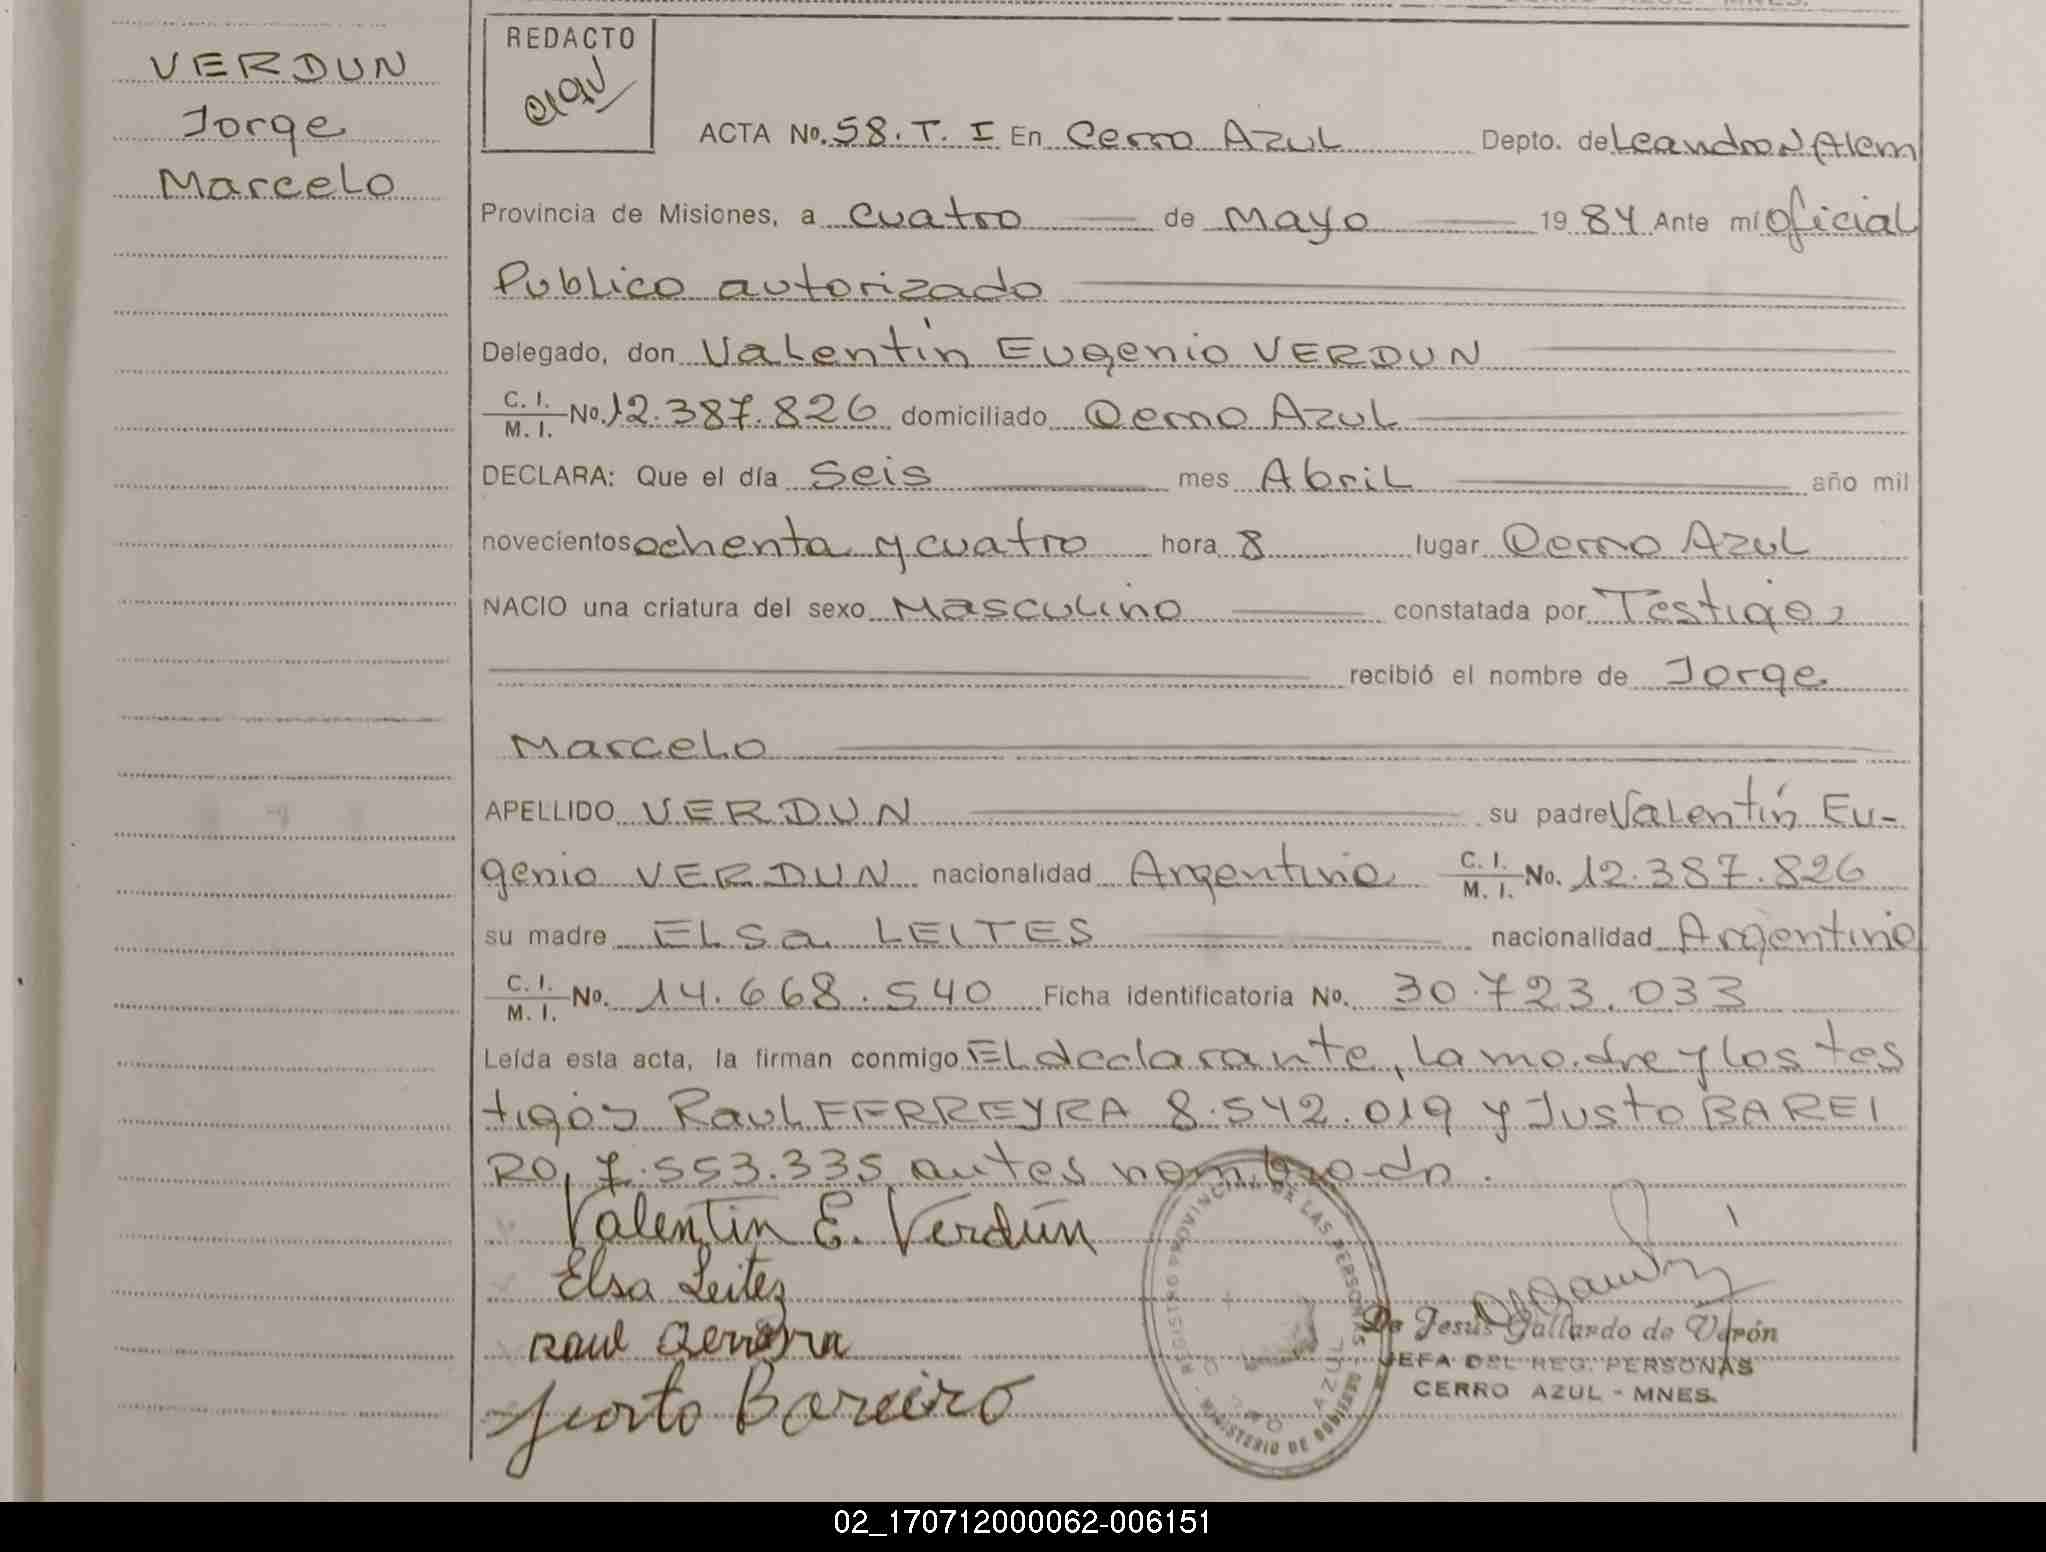 VERDUN
Jorge
Marcelo
REDACTO
ACTA No. 58. T. I En Cerro Azul Depto. de Leandro N Alem
Provincia de Misiones, a cuatro de Mayo 1984 Ante mí oficial
Publico autorizado
Delegado, don Valentín Eugenio VERDUN
C. I.
M. I. No. 12.387.826 domiciliado Cerro Azul
DECLARA: Que el día Seis mes Abril año mil
novecientos ochenta y cuatro hora 8 lugar Cerro Azul
NACIO una criatura del sexo Masculino constatada por Testigos
recibió el nombre de Jorge
Marcelo
APELLIDO VERDUN su padre Valentín Eu-
genio VERDUN nacionalidad Argentino C. I.
M. I. No. 12.387.826
su madre ELsa LEITES nacionalidad Argentino
C. I.
M. I. No. 14.668.540 Ficha identificatoria No. 30.723.033
Leída esta acta, la firman conmigo EL declarante, la madre y los tes
tigos Raul FERREYRA 8.542.019 y Justo BAREI
RO, 7.553.335 antes nombrado.
Valentín E. Verdún
Elsa Leites
Raul
Justo Bareiro
REGISTRO PROVINCIAL DE LAS PERSONAS
MINISTERIO DE GOBIERNO
AZUL
De Jesús Gallardo de Verón
JEFA DEL REG. PERSONAS
CERRO AZUL - MNES.
02_170712000062-006151